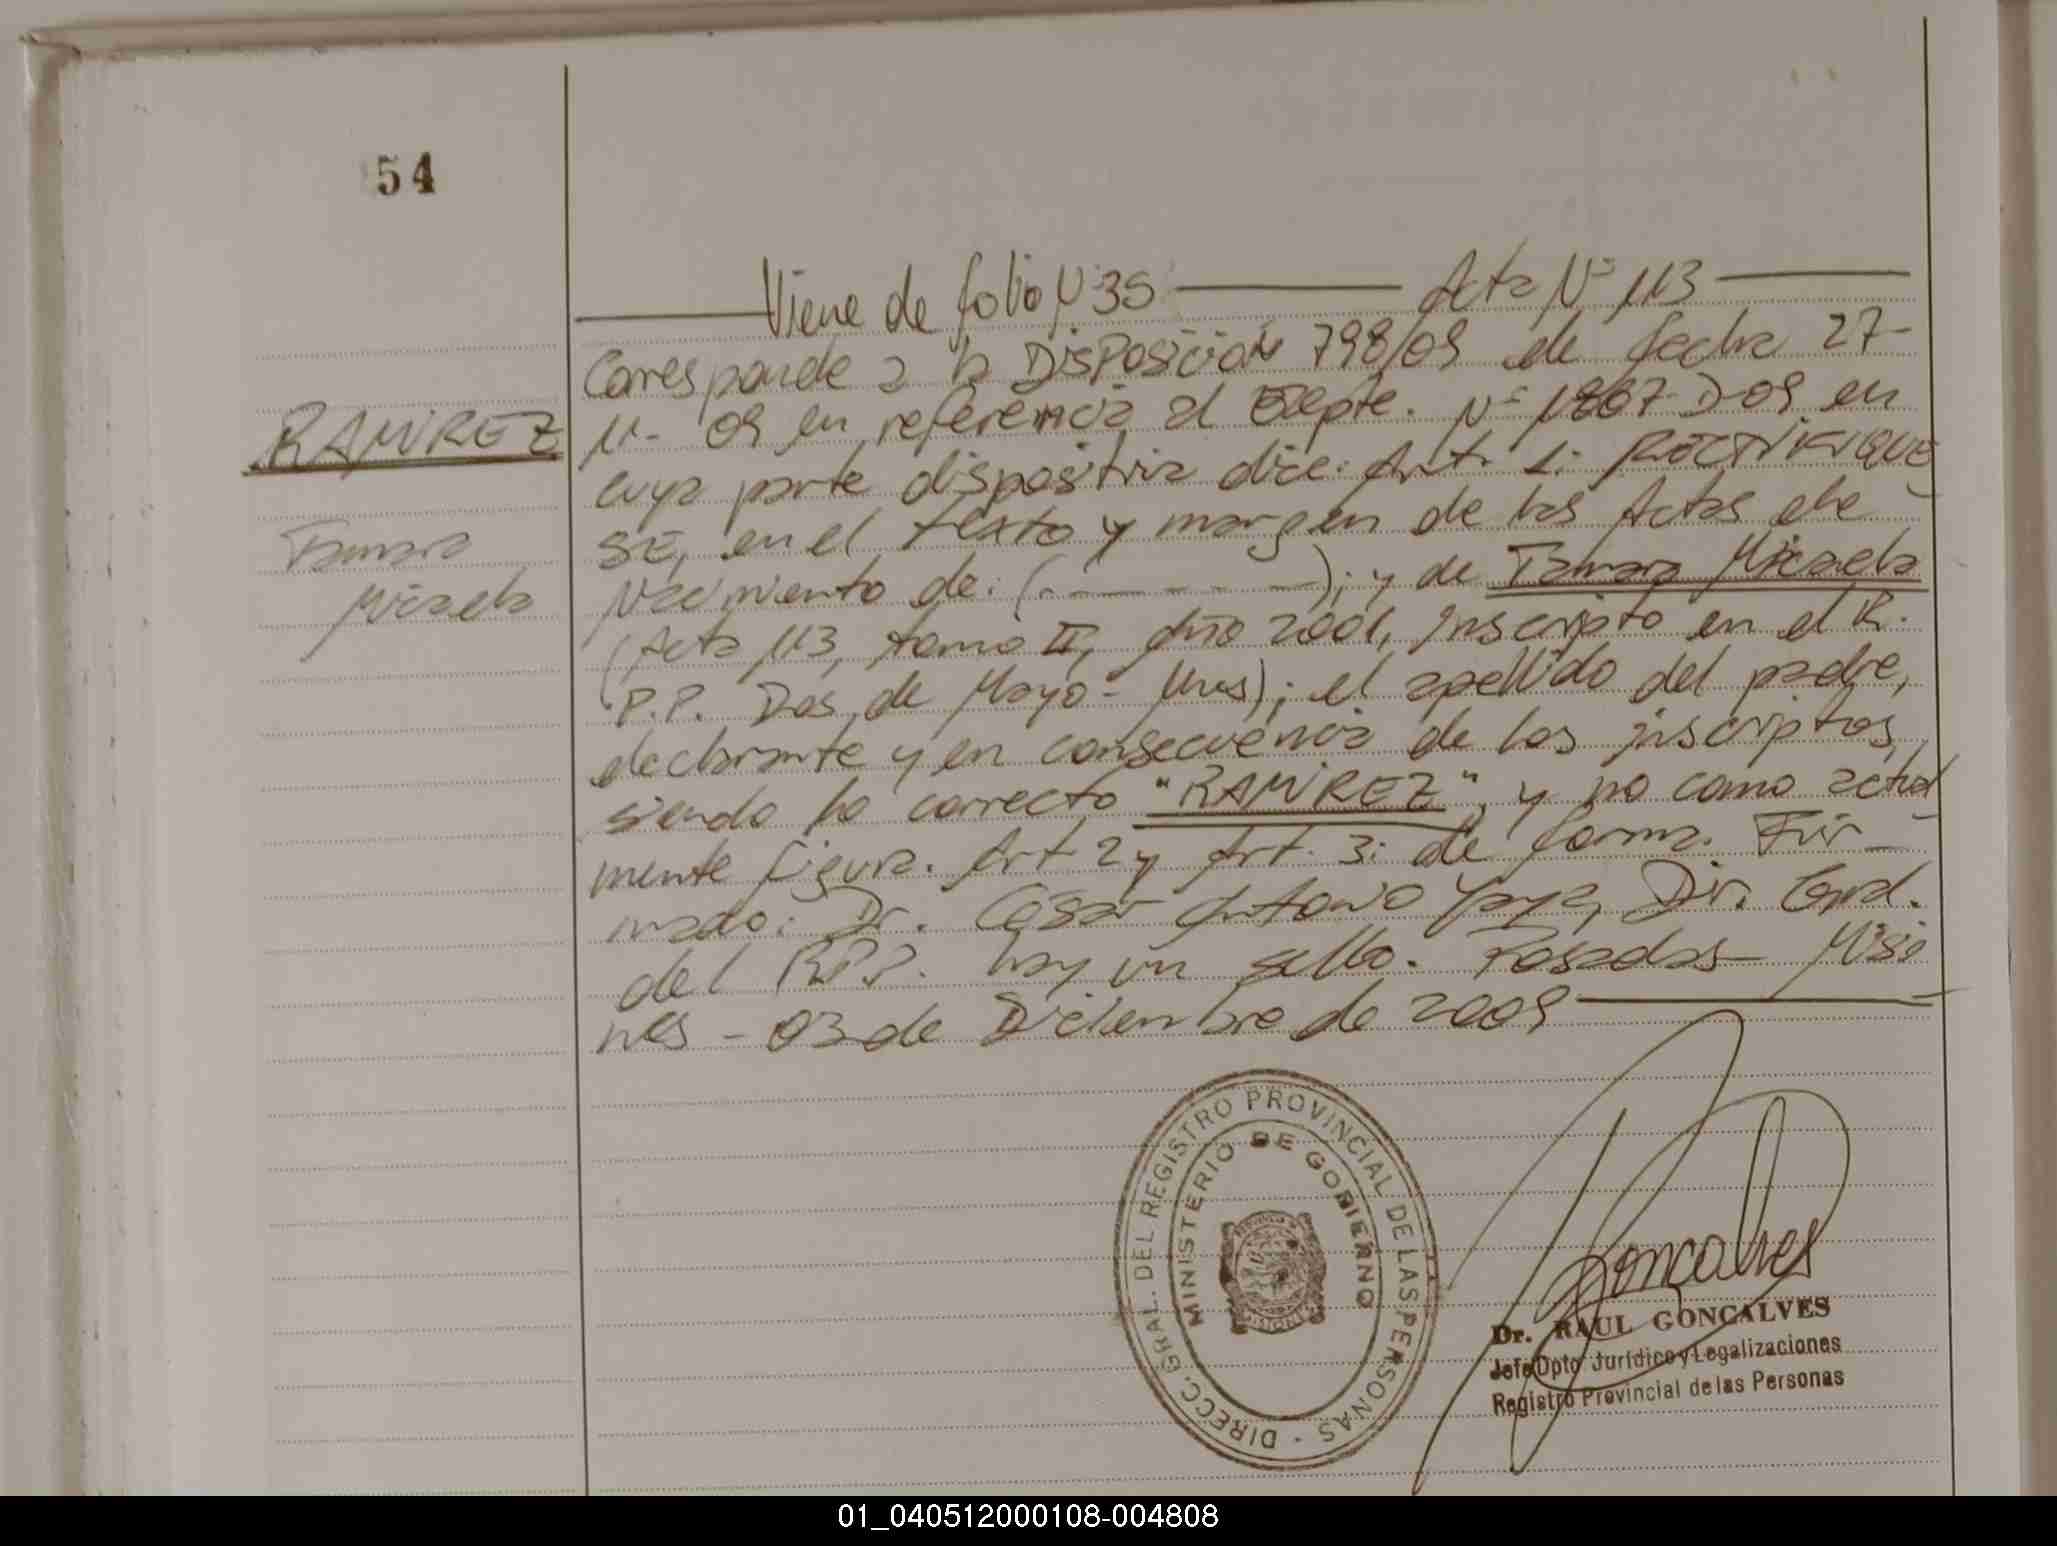 54
Viene de folio N 35 Acta Nº 113
Corresponde a la DISPOSICION 798/09 de fecha 27-
11- 09 en referencia al Expte. Nº 1867-D-09 en
cuya parte dispositiva dice: Art. 1: RECTIFIQUE
SE, en el texto y margen de las Actas de
Nacimiento de: (- - - - - -); y de Tamara Micaela
(Acta 113, tomo II, Año 2001, inscripto en el R.
P.P. Dos de Mayo - Mnes); el apellido del padre,
declarante y en consecuencia de los inscriptos,
siendo lo correcto "RAMIREZ", y no como actual
mente figura. Art 2 y Art. 3: de forma. Fir-
mado: Dr. César Antonio Dir. Gral.
del RPP. hay un sello. Posadas - Misio
nes - 03 de Diciembre de 2009
RAMIREZ
Tamara
Micaela
DIRECC. GRAL. DEL REGISTRO PROVINCIAL DE LAS PERSONAS -
MINISTERIO DE GOBIERNO
MISIONES
Goncalves
Dr. RAUL GONCALVES
Jefe Dpto Jurídico y Legalizaciones
Registro Provincial de las Personas
01_040512000108-004808